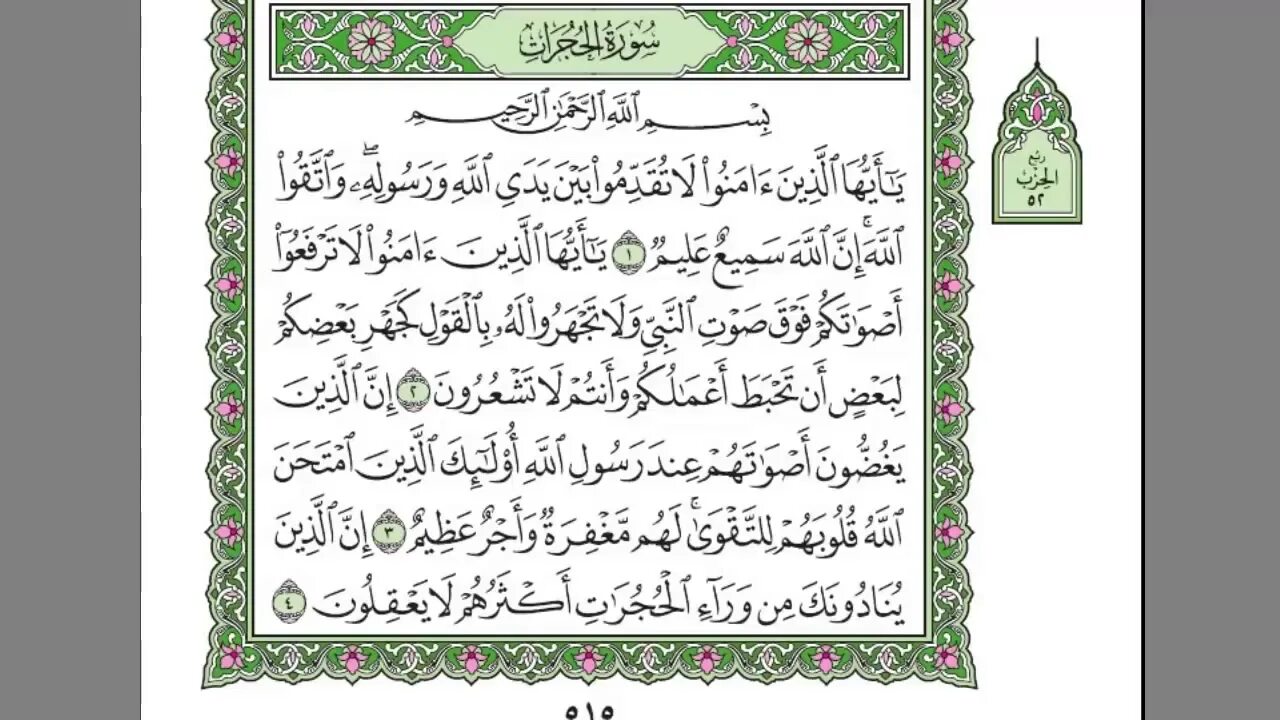 سُورَةُ الحُجُرَاتِ
بِسْمِ ٱللَّهِ ٱلرَّحْمَٰنِ ٱلرَّحِيمِ
يَٰٓأَيُّهَا ٱلَّذِينَ ءَامَنُوا۟ لَا تُقَدِّمُوا۟ بَيْنَ يَدَىِ ٱللَّهِ وَرَسُولِهِۦ ۖ وَٱتَّقُوا۟
ٱللَّهَ ۚ إِنَّ ٱللَّهَ سَمِيعٌ عَلِيمٌ ١ يَٰٓأَيُّهَا ٱلَّذِينَ ءَامَنُوا۟ لَا تَرْفَعُوٓا۟
أَصْوَٰتَكُمْ فَوْقَ صَوْتِ ٱلنَّبِىِّ وَلَا تَجْهَرُوا۟ لَهُۥ بِٱلْقَوْلِ كَجَهْرِ بَعْضِكُمْ
لِبَعْضٍ أَن تَحْبَطَ أَعْمَٰلُكُمْ وَأَنتُمْ لَا تَشْعُرُونَ ٢ إِنَّ ٱلَّذِينَ
يَغُضُّونَ أَصْوَٰتَهُمْ عِندَ رَسُولِ ٱللَّهِ أُو۟لَٰٓئِكَ ٱلَّذِينَ ٱمْتَحَنَ
ٱللَّهُ قُلُوبَهُمْ لِلتَّقْوَىٰ ۚ لَهُم مَّغْفِرَةٌ وَأَجْرٌ عَظِيمٌ ٣ إِنَّ ٱلَّذِينَ
يُنَادُونَكَ مِن وَرَآءِ ٱلْحُجُرَٰتِ أَكْثَرُهُمْ لَا يَعْقِلُونَ ٤
رُبْع
الحِزْب
٥٢
٥١٥